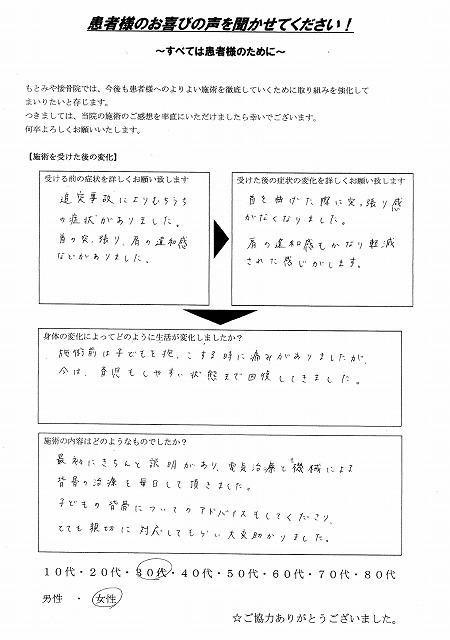 患者様のお喜びの声を聞かせてください！
～すべては患者様のために～
もとみや接骨院では、今後も患者様へのよりよい施術を徹底していくために取り組みを強化して
まいりたいと存じます。
つきましては、当院の施術のご感想を率直にいただけましたら幸いでございます。
何卒よろしくお願いいたします。
【施術を受けた後の変化】
受ける前の症状を詳しくお願い致します
追突事故によりむちうち
の症状がありました。
首の突っ張り、肩の違和感
などがありました。
受けた後の症状の変化を詳しくお願い致します
首を曲げた際に突っ張り感
がなくなりました。
肩の違和感もかなり軽減
された感じがします。
身体の変化によってどのように生活が変化しましたか？
施術前は子どもを抱っこする時に痛みがありましたが、
今は、育児もしやすい状態まで回復してきました。
施術の内容はどのようなものでしたか？
最初にきちんと説明があり、電気治療と機械による
背骨の治療を毎日して頂きました。
子どもの背骨についてのアドバイスもしてくださり、
とても親切に対応してもらい大変助かりました。
１０代・２０代・３０代・４０代・５０代・６０代・７０代・８０代
男性　・　女性
☆ご協力ありがとうございました。